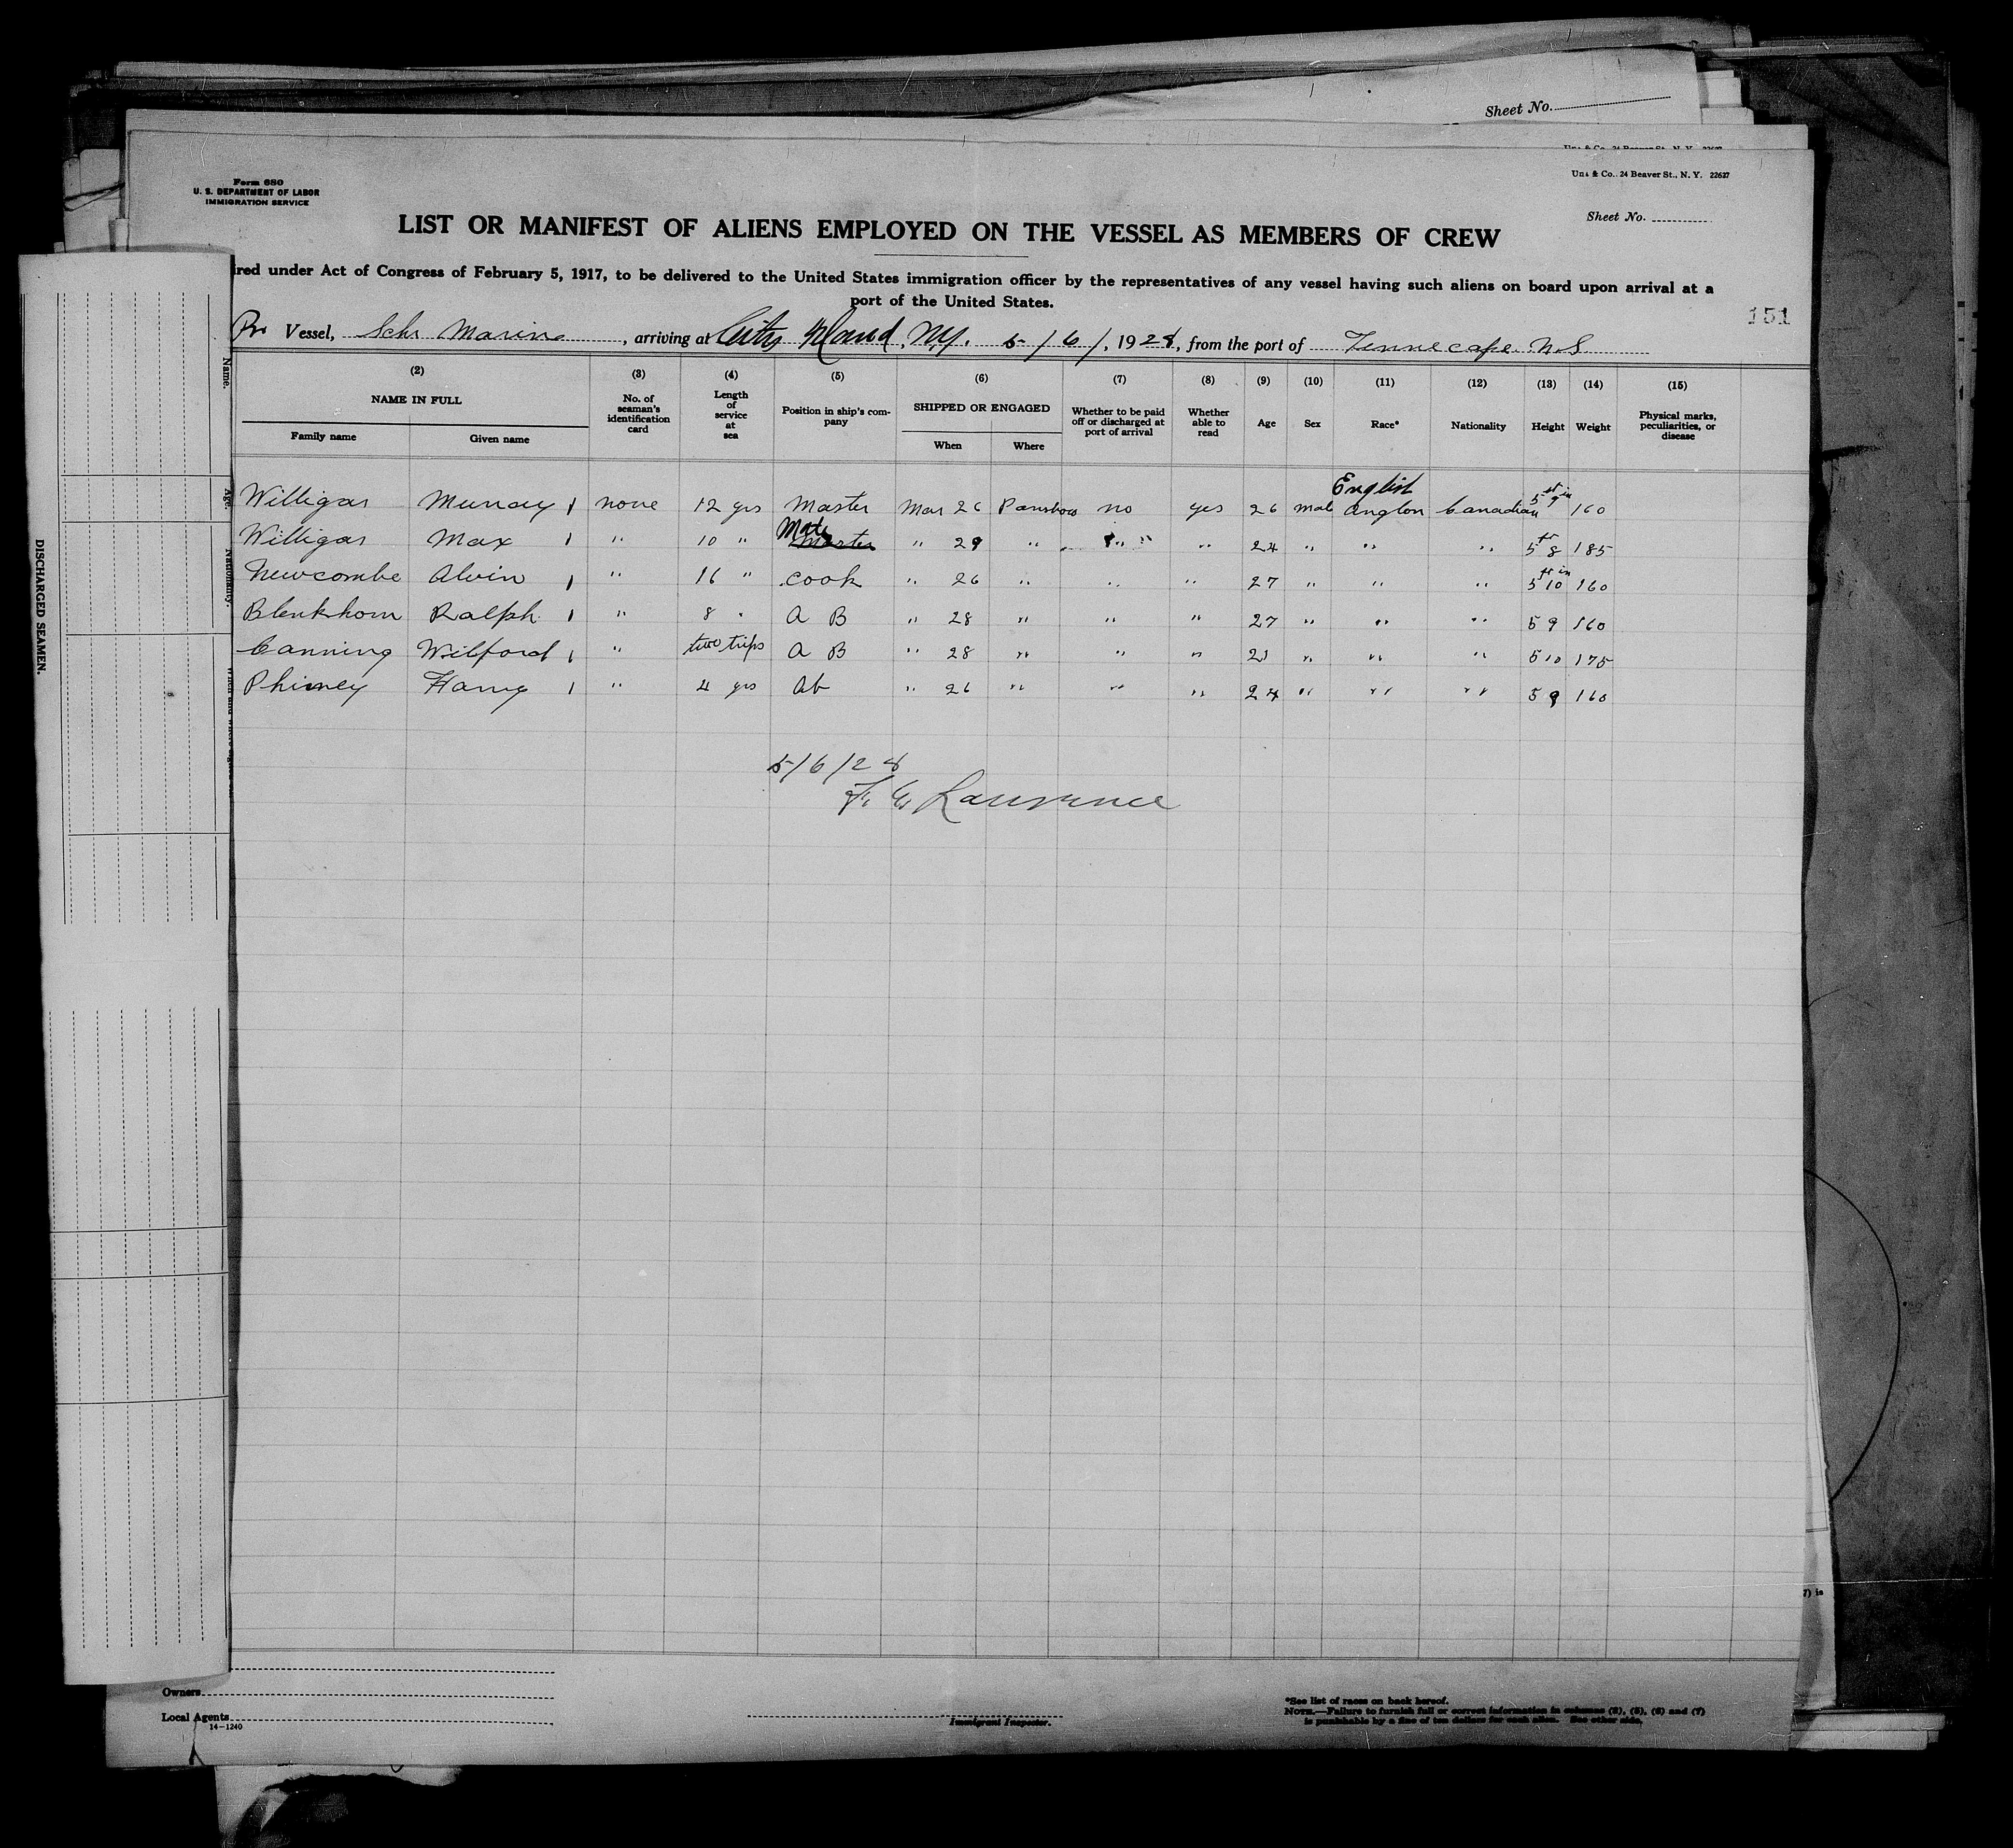 Sheet No.
Form 680
U. S. DEPARTMENT OF LABOR
IMMIGRATION SERVICE
& Co., 24 Beaver St., N. Y. 22627
Sheet No.
LIST OR MANIFEST OF ALIENS EMPLOYED ON THE VESSEL AS MEMBERS OF CREW
ired under Act of Congress of February 5, 1917, to be delivered to the United States immigration officer by the representatives of any vessel having such aliens on board upon arrival at a
port of the United States.
151
Vessel, Schr Marine, arriving at City Island, N.Y. 5/6/, 1928, from the port of Tennecape N S
(2) (3) (4) (5) (6) (7) (8) (9) (10) (11) (12) (13) (14) (15)
NAME IN FULL No. of seaman's identification card Length of service at sea Position in ship's company SHIPPED OR ENGAGED Whether to be paid off or discharged at port of arrival Whether able to read Age Sex Race* Nationality Height Weight Physical marks, peculiarities, or disease
Family name Given name When Where
English
Willigar Murray 1 none 12 yrs Master Mar 26 no yes 26 male Canadian 5 ft 9 in 160
Mate
Willigar Max 1 " 10 " Master " 29 " " " 24 " " " 5 ft 8 185
Newcombe Alvin 1 " 16 " cook " 26 " " " 27 " " " 5 ft 10 in 160
Blenkhorn Ralph 1 " 8 " A B " 28 " " " 27 " " " 5 9 160
Canning Wilford 1 " two trips A B " 28 " " " " " " 5 10 175
Phinney Harry 1 " 4 yrs ab " 26 " " " 24 " " " 5 9 160
5/6/28
Lawrence
Name.
Age.
Nationality.
DISCHARGED SEAMEN.
Owners
Local Agents
14—1240
Immigrant Inspector.
*See list of races on back hereof.
NOTE.—Failure to furnish full or correct information in columns (2), (5), (6) and (7)
is punishable by a fine of ten dollars for each alien. See other side.
7) is